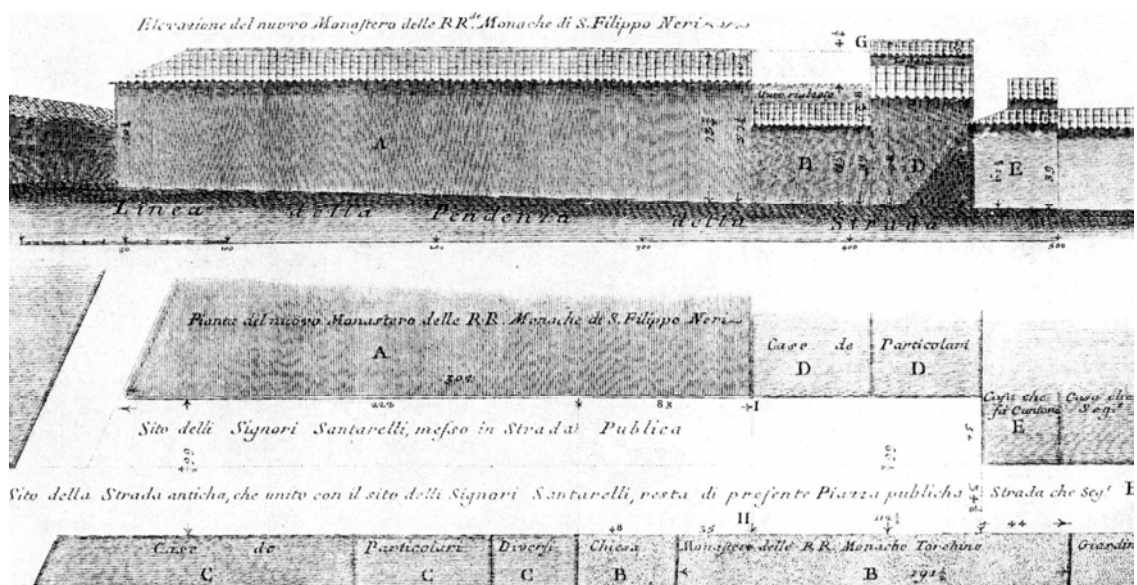 Elevazione del nuovo Monastero delle RR.de Monache di S. Filippo Neri
G
Muro rialzato
A
D
D
E
Linea della Pendenza della Strada
50 100 200 300 400 500
Pianta del nuovo Monastero delle R.R. Monache di S. Filippo Neri
A
302
Case de Particolari
D
D
222
83
I
Casa che fà Cantone
E
Case che Seg.e
Sito delli Signori Santarelli, messo in Strada Publica
45
Sito della Strada anticha, che unito con il sito delli Signori Santarelli, resta di presente Piazza publicha
Strada che Seg.e
H
48
44
Case de Particolari Diversi
C
C
C
Chiesa
B
Monastero delle R.R. Monache Torchine
B
191½
Giardin